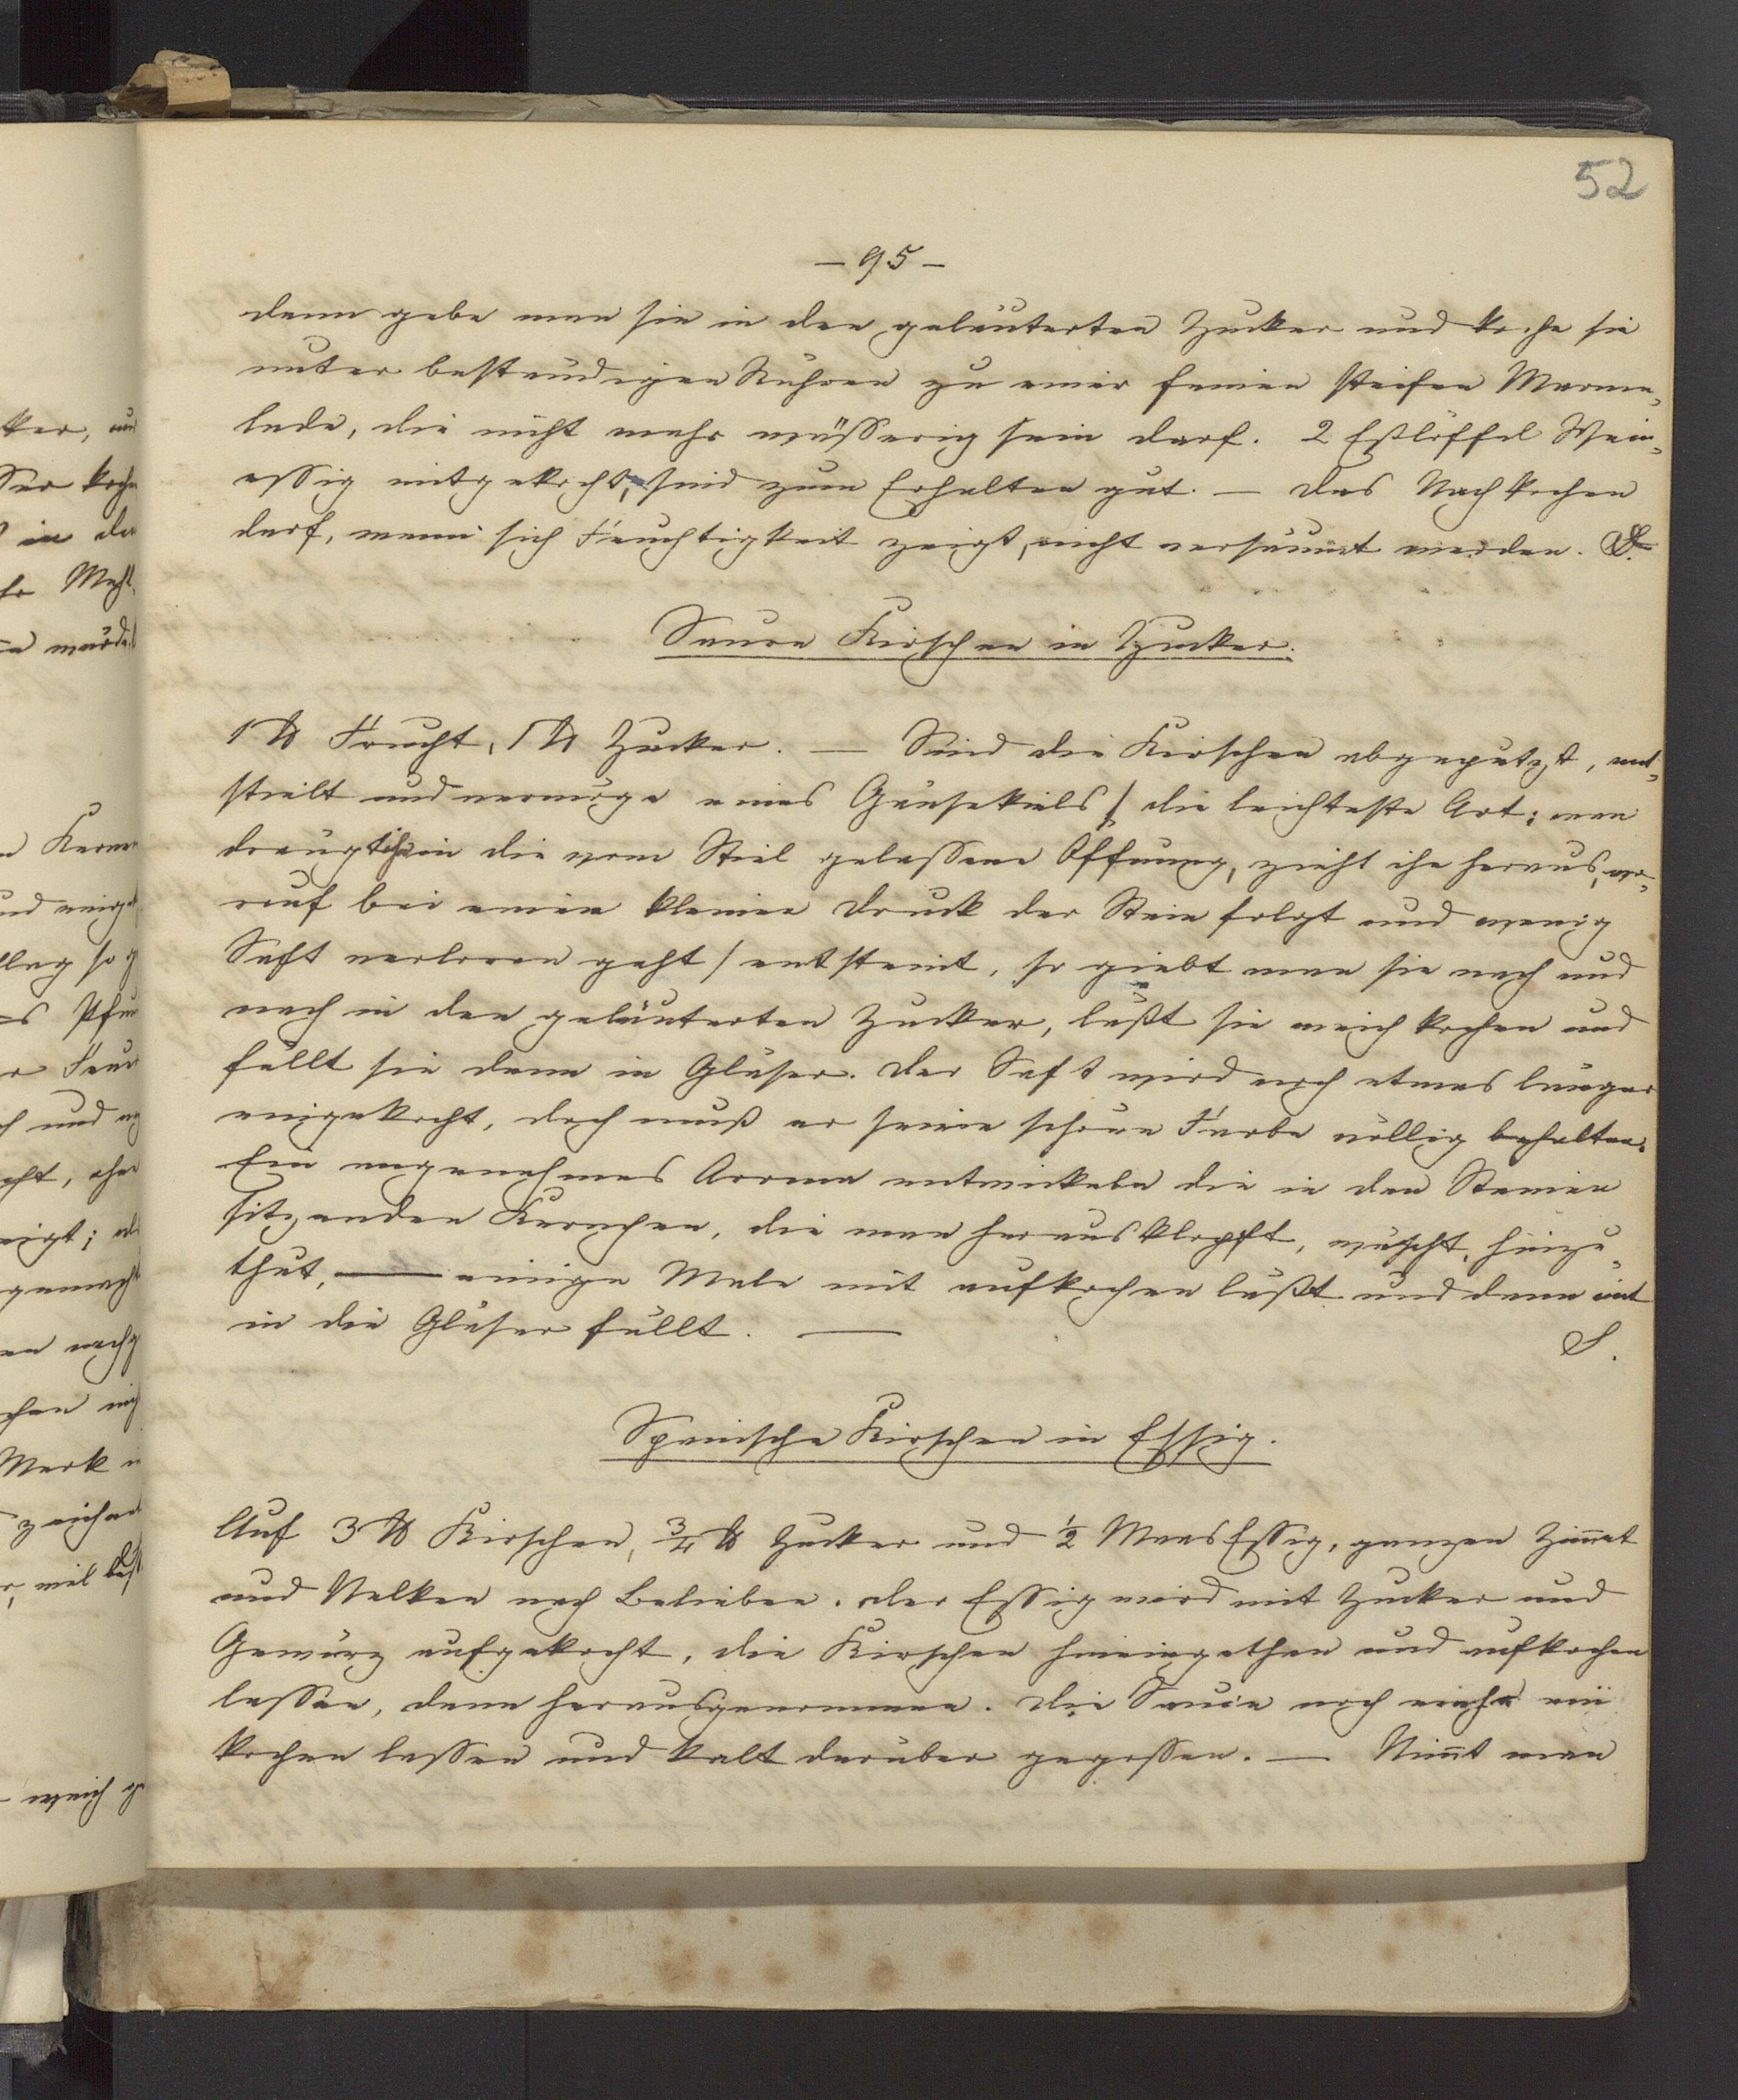 52
– 95 –
dann gebe man sie in den geläuterten Zucker und koche sie
unter beständigem Rühren zu einer feinen steifen Marme-
lade, die nicht mehr wässerig sein darf. 2 Eßlöffel Wein-
essig mitgekocht, sind zum Erhalten gut. — Das Nachkochen
darf, wenn sich Feuchtigkeit zeigt, nicht versäumt werden. S.
Saure Kirschen in Zucker.
1 ℔ Frucht, 1 ℔ Zucker. — Sind die Kirschen abgeputzt, ent-
stielt und vermöge eines Gänsekiels / die leichteste Art: man
drängt ihn in die vom Stiel gelassene Öffnung, zieht ihn heraus, wo-
rauf bei einem kleinen Druck der Stein folgt und wenig
Saft verloren geht / entsteint, so giebt man sie nach und
nach in den geläuterten Zucker, läßt sie weich kochen und
füllt sie dann in Gläser. Der Saft wird noch etwas länger
eingekocht, doch muß er seine schöne Farbe völlig behalten.
Ein angenehmes Aroma entwickeln die in den Steinen
sitzenden Kernchen, die man herausklopft, wäscht, hinzu-
thut, — einige Male mit aufkochen läßt und dann mit
in die Gläser füllt. —
S.
Spanische Kirschen in Essig.
Auf 3 ℔ Kirschen, 3/4 ℔ Zucker und 1/2 Maas Essig, ganzen Zimmt
und Nelken nach Belieben. Der Essig wird mit Zucker und
Gewürz aufgekocht, die Kirschen hineingethan und aufkochen
lassen, dann herausgenommen. Die Sauce noch mehr ein
kochen lassen und kalt darüber gegossen. — Nimmt man